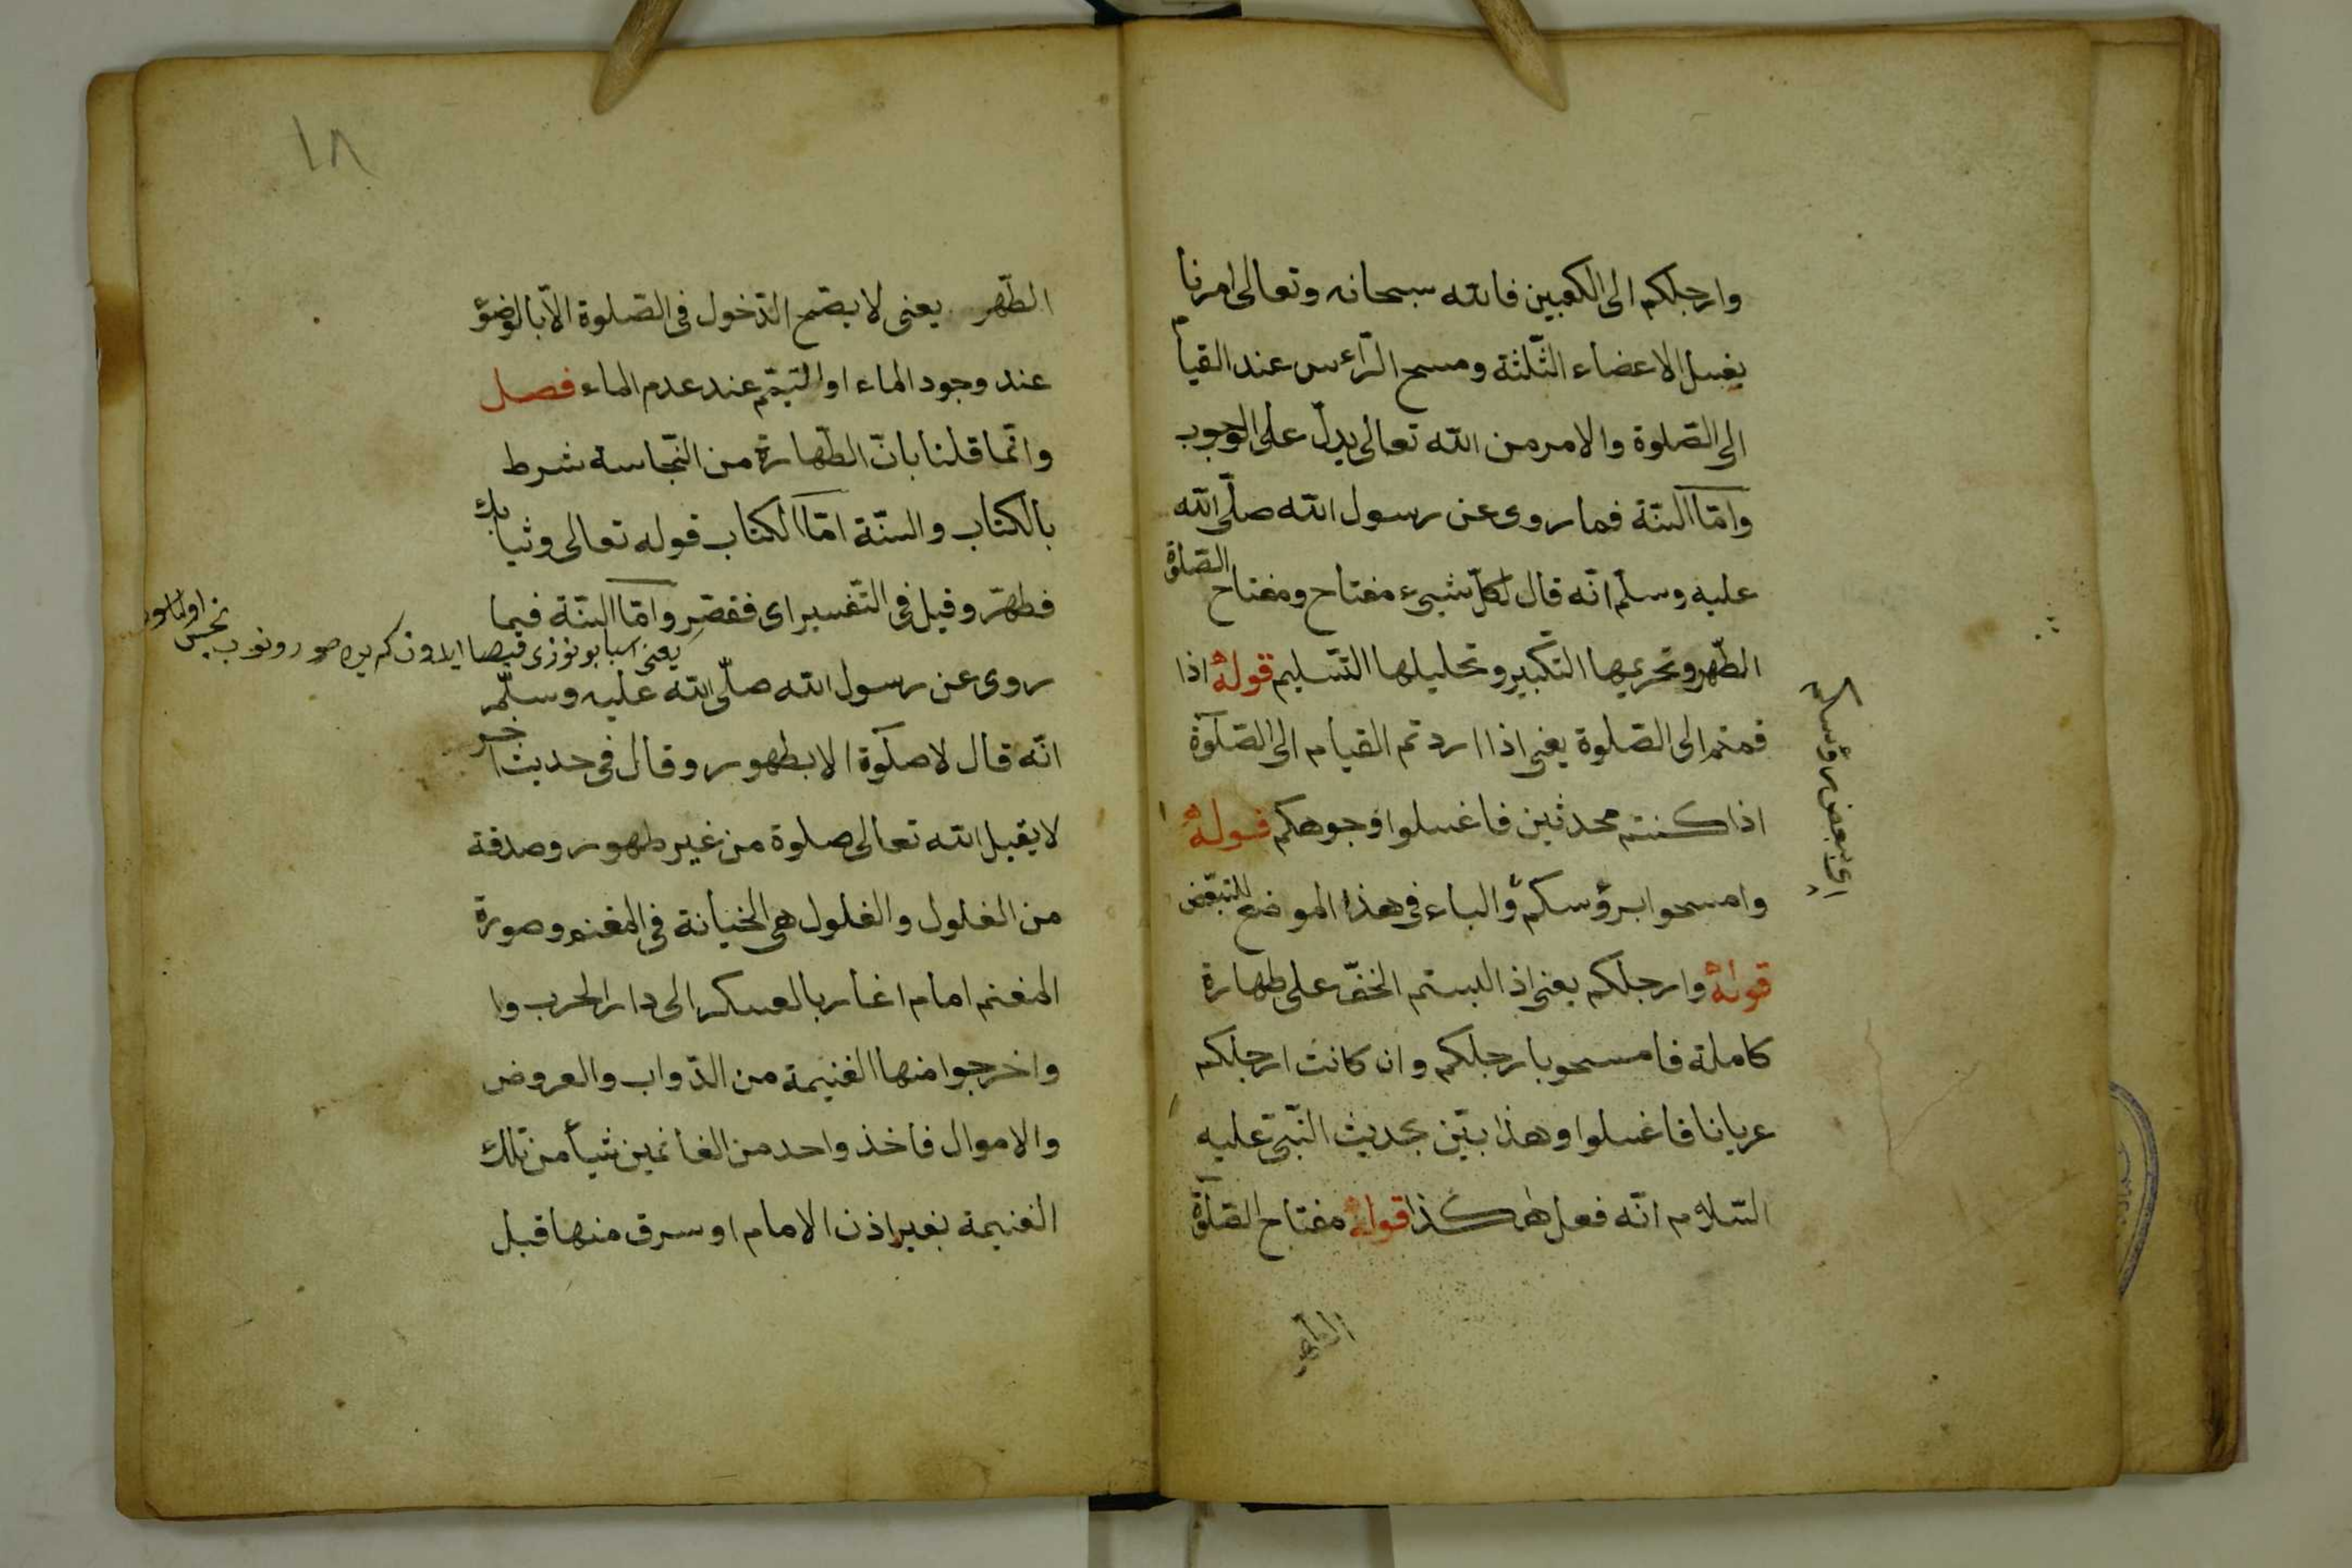 وارجلكم الى الكعبين فالله سبحانه وتعالى امرنا
بغسل الاعضاء الثّلثة ومسح الرّأس عند القيام
الى الصّلوة والامر من الله تعالى يدلّ على الوجوب
وامّا السنّة فما روى عن رسول الله صلّى الله
عليه وسلّم انّه قال لكلّ شيىء مفتاح ومفتاح الصّلوة
الطّهر وتحريمها التكبير وتحليلها التّسليم قولهُ اذا
قمتم الى الصّلوة يعنى اذا اردتم القيام الى الصّلوة
اذا كنتم محدثين فاغسلوا وجوهكم قولهُ
وامسحوا برؤسكم والباء فى هذا الموضع للتبعّض
قولهُ وارجلكم يعنى اذا لبستم الخفّ على طهارة
كاملة فامسحو بارجلكم وان كانت ارجلكم
عريانا فاغسلوا وهذا بيّن بحديث النّبىّ عليه
السّلام انّه فعل هكذا قولهُ مفتاح الصّلوة
الطّهر
اى ببعض رؤسكم
١٨
الطّهر يعنى لا يصّح الدّخول فى الصّلوة الاّ بالوضؤ
عند وجود الماء او التيمّم عند عدم الماء فصل
وانّما قلنا بانّ الطّهارة من النّجاسة شرط
بالكتاب والسنّة امّا الكتاب قوله تعالى وثيابك
فطهّر وقيل فى التّفسير اى فقصّر وامّا السنّة فيما
يعنى
روى عن رسول الله صلّى الله عليه وسلّم
انّه قال لا صلوة الا بطهور وقال فى حديث اخر
لا يقبل الله تعالى صلوة من غير طهور وصدقة
من الغلول والغلول هى الخيانة فى المغنم وصورة
المغنم امام اغار بالعسكر الى دار الحرب وا
واخرجوا منها الغنيمة من الدّواب والعروض
والاموال فاخذ واحد من الغانمين شيأ من تلك
الغنيمة بغير اذن الامام او سرق منها قبل